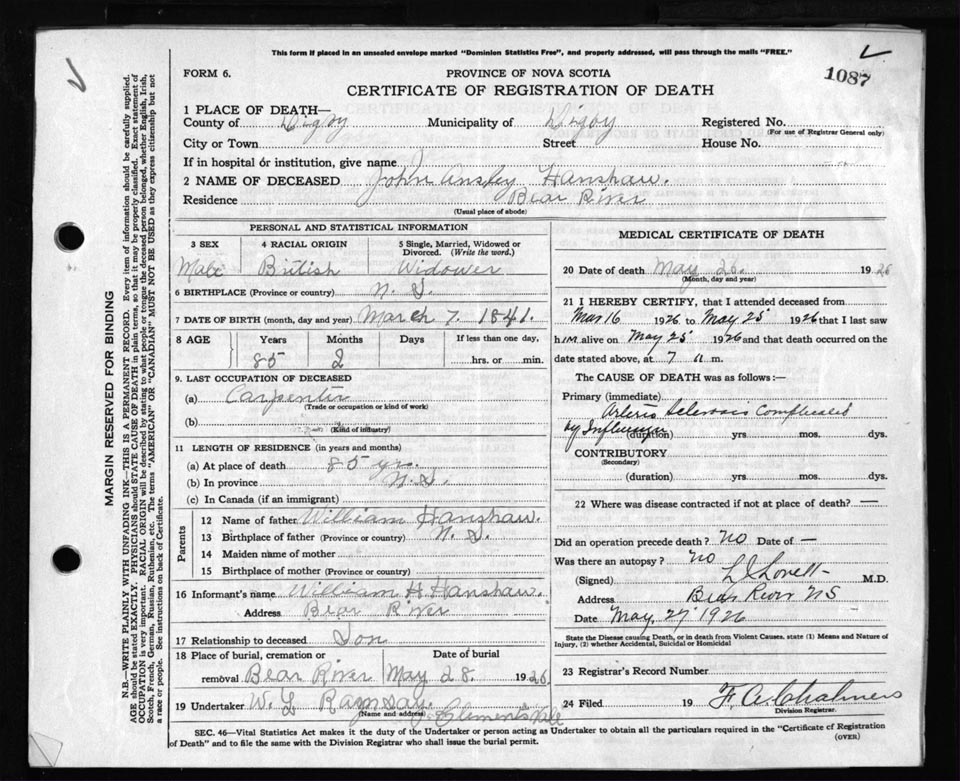 This form if placed in an unsealed envelope marked "Dominion Statistics Free", and properly addressed, will pass through the mails "FREE."
FORM 6.
PROVINCE OF NOVA SCOTIA
1087
CERTIFICATE OF REGISTRATION OF DEATH
1 PLACE OF DEATH—
County of Digby Municipality of Digby Registered No.
(For use of Registrar General only)
City or Town Street House No.
If in hospital or institution, give name
2 NAME OF DECEASED John Ansley Hanshaw.
Residence Bear River
(Usual place of abode)
PERSONAL AND STATISTICAL INFORMATION
3 SEX 4 RACIAL ORIGIN 5 Single, Married, Widowed or Divorced. (Write the word.)
Male British Widower
6 BIRTHPLACE (Province or country) N. S.
7 DATE OF BIRTH (month, day and year) March 7. 1841.
8 AGE Years Months Days If less than one day,
85 2 hrs. or min.
9. LAST OCCUPATION OF DECEASED
(a) Carpenter
(Trade or occupation or kind of work)
(b)
(Kind of industry)
11 LENGTH OF RESIDENCE (in years and months)
(a) At place of death 85 yrs.
(b) In province N. S.
(c) In Canada (if an immigrant)
Parents
12 Name of father William Hanshaw.
13 Birthplace of father (Province or country) N. S.
14 Maiden name of mother
15 Birthplace of mother (Province or country)
16 Informant's name William H. Hanshaw.
Address Bear River
17 Relationship to deceased Son
18 Place of burial, cremation or Date of burial
removal Bear River May 28. 1926.
19 Undertaker W. L. Ramsay.
(Name and address) Clementsvale
MEDICAL CERTIFICATE OF DEATH
20 Date of death May 26. 1926
(Month, day and year)
21 I HEREBY CERTIFY, that I attended deceased from
Mar 16 1926 to May 25 1926 that I last saw
him alive on May 25 1926 and that death occurred on the
date stated above, at 7 a m.
The CAUSE OF DEATH was as follows:—
Primary (immediate)
Arterio Sclerosis Complicated
by Influenza
(duration) yrs. mos. dys.
CONTRIBUTORY
(Secondary)
(duration) yrs. mos. dys.
22 Where was disease contracted if not at place of death? —
Did an operation precede death? No Date of —
Was there an autopsy? No
(Signed) L J Lovett M.D.
Address Bear River NS
Date May, 27 1926
State the Disease causing Death, or in death from Violent Causes, state (1) Means and Nature of
Injury, (2) whether Accidental, Suicidal or Homicidal
23 Registrar's Record Number
24 Filed 19 F. A. Chalmers
Division Registrar.
SEC. 46—Vital Statistics Act makes it the duty of the Undertaker or person acting as Undertaker to obtain all the particulars required in the "Certificate of Registration
of Death" and to file the same with the Division Registrar who shall issue the burial permit.
(OVER)
MARGIN RESERVED FOR BINDING
N.B.—WRITE PLAINLY WITH UNFADING INK—THIS IS A PERMANENT RECORD. Every item of information should be carefully supplied.
AGE should be stated EXACTLY. PHYSICIANS should STATE CAUSE OF DEATH in plain terms, so that it may be properly classified. Exact statement of
OCCUPATION is very important. RACIAL ORIGIN will be described by stating to what people or tongue the deceased person belonged, whether English, Irish,
Scotch, French, German, Russian, Ruthenian, etc. The terms "AMERICAN" OR "CANADIAN" MUST NOT BE USED as they express citizenship but not
a race or people. See instructions on back of Certificate.